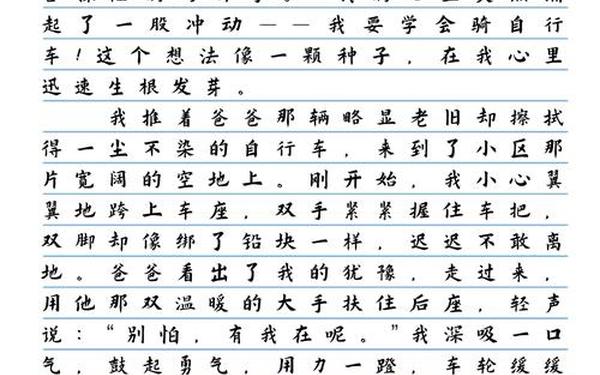 起了一股冲动——我要学会骑自行
车!这个想法像一颗种子，在我心里
迅速生根发芽。
我推着爸爸那辆略显老旧却擦拭
得一尘不染的自行车，来到了小区那
片宽阔的空地上。刚开始，我小心翼
翼地跨上车座，双手紧紧握住车把，
双脚却像绑了铅块一样，迟迟不敢离
地。爸爸看出了我的犹豫，走过来，
用他那双温暖的大手扶住后座，轻声
说：“别怕，有我在呢。”我深吸一口
气，鼓起勇气，用力一蹬，车轮缓缓